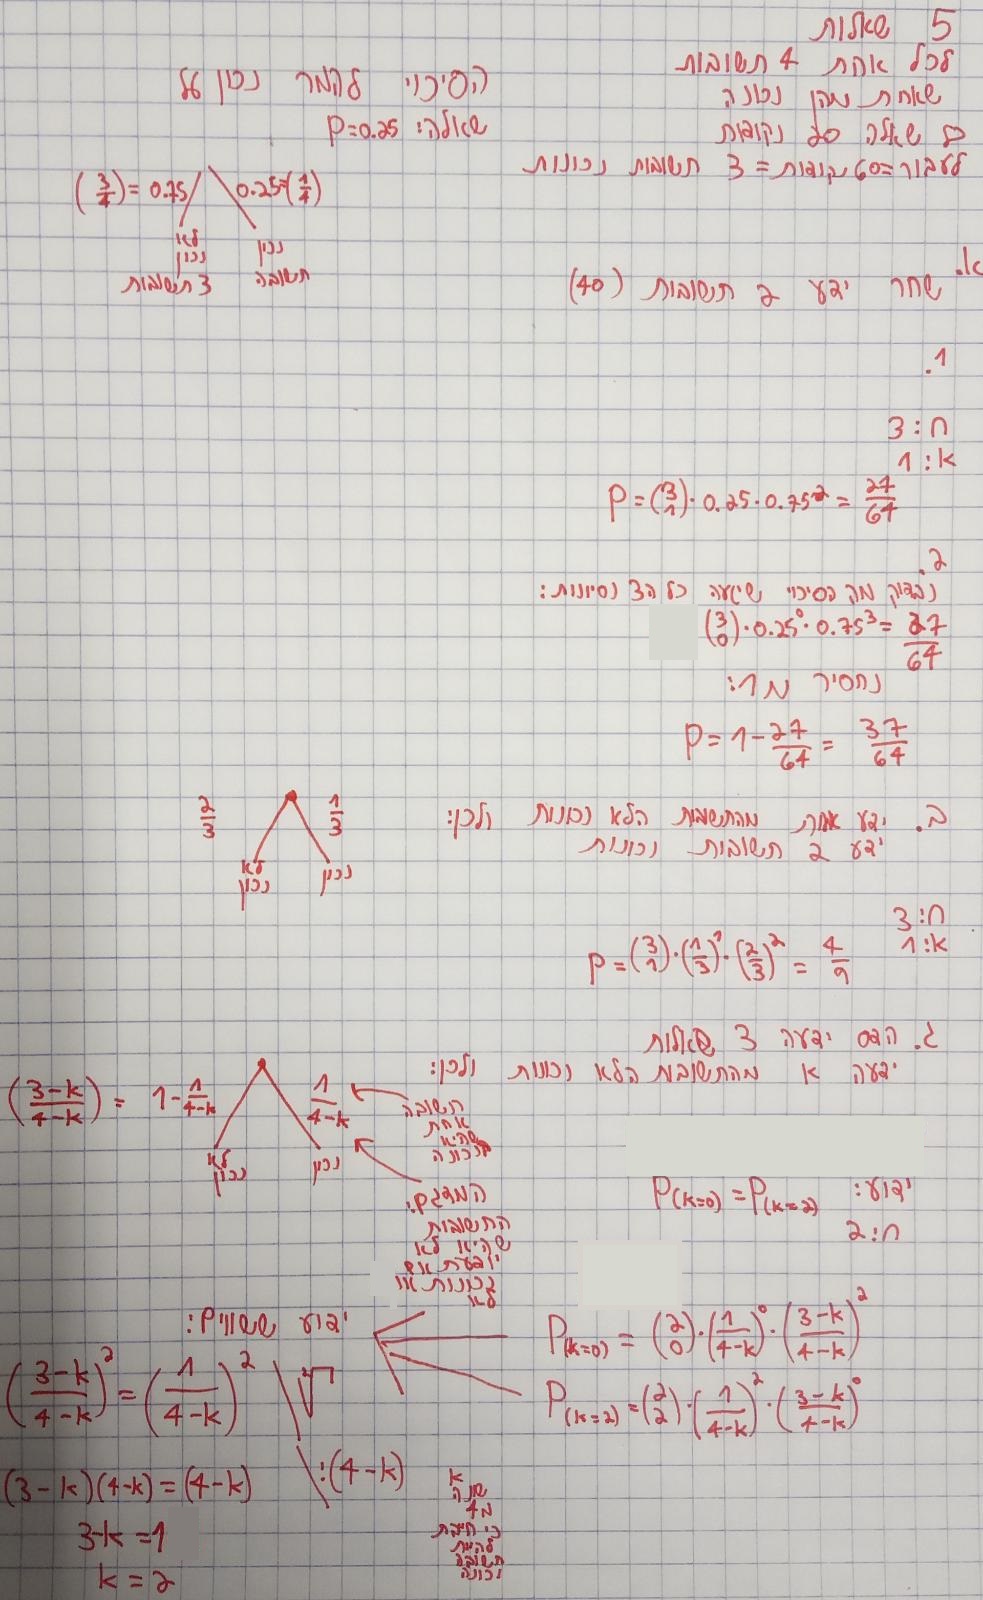 5 שאלות
לכל אחת 4 תשובות
שאחת מהן נכונה
כל שאלה 20 נקודות
לעבור=60 נקודות= 3 תשובות נכונות
הסיכוי להמר נכון על
שאלה: P=0.25
(3/4) = 0.75 0.25=(1/4)
לא נכון נכון
3 תשובות תשובה
א. שחר ידע 2 תשובות (40)
1.
ח: 3
א: 1
P = (3 1) · 0.25 · 0.75² = 27/64
2.
נבדוק מה הסיכוי שיטעה כל ה3 נסיונות:
(3 0) · 0.25⁰ · 0.75³ = 27/64
נחסיר מ 1:
P = 1 - 27/64 = 37/64
ב. ידע אחת מהתשובות הלא נכונות ולכן:
ידע 2 תשובות נכונות
2/3 1/3
לא נכון נכון
ח: 3
א: 1
P = (3 1) · (1/3)¹ · (2/3)² = 4/9
ג. הדס ידעה 3 שאלות
ידעה k מהתשובות הלא נכונות ולכן:
((3-k)/(4-k)) = 1 - 1/(4-k) 1/(4-k)
לא נכון נכון
תשובה
אחת
שהיא
נכונה
המדגם:
התשובות
שהיא לא
יודעת אם
נכונות או
לא
ידוע: P(k=0) = P(k=2)
ח: 2
P(k=0) = (2 0) · (1/(4-k))⁰ · ((3-k)/(4-k))²
P(k=2) = (2 2) · (1/(4-k))² · ((3-k)/(4-k))⁰
ידוע ששווים:
((3-k)/(4-k))² = (1/(4-k))² \ √
(3-k)(4-k) = (4-k) \ :(4-k)
k
שונה
מ4
כי חייבת
להיות
תשובה
נכונה
3-k = 1
k = 2